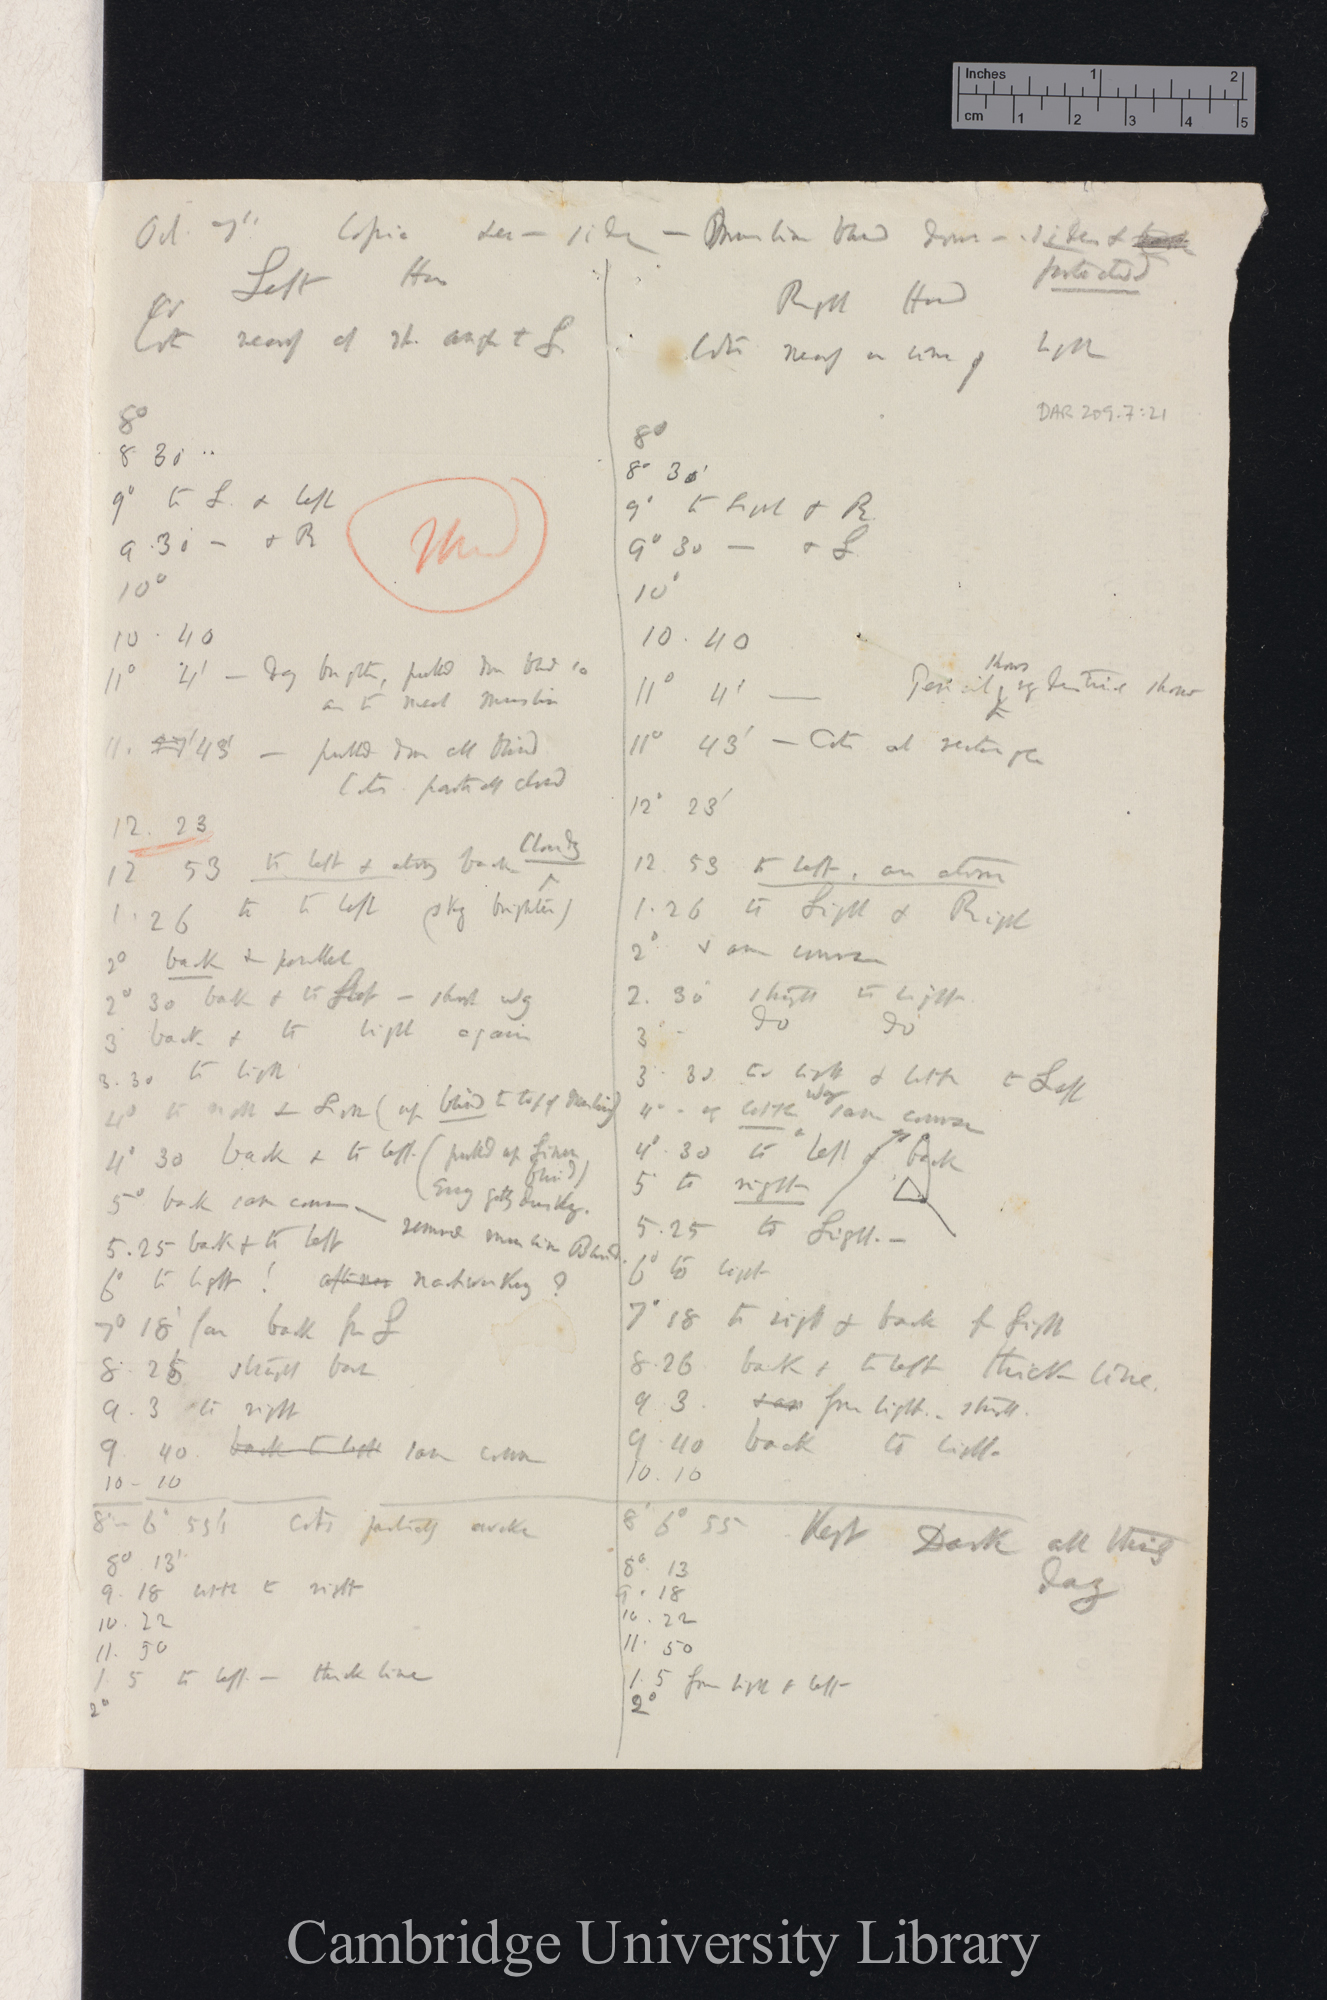 Inches 1 2
cm 1 2 3 4 5
Oct. 7th Muslin blind down — sides &
protected
Left Hand
Right Hand
Cots nearly at rt. angle to L
Cots nearly in line of light
DAR 209.7:21
8°
8 30
9° to L. & left
9.30 — & R
10°
10.40
11° 4' — Day brighter, pulled down blind so
as to meet muslin
11. 43' — pulled down all blind
Cots partially closed
12. 23
12 53 to left & along back cloudy
1.26 to left (sky brighter)
2° back & parallel
2° 30 back & to left — short way
3 back & to light again
3.30 to light
4° to right & Light (up blind to top of Muslin)
4° 30 back & to left (pulled up linen blind)
5° back same course (Evng getting dusky.
5.25 back & to left remove muslin Blind.
6° to light!
7° 18' far back from L
8.26 straight back
9.3 to right
9.40 back to left same course
10-10
8° 6° 55' Cots partially awake
8° 13'
9.18 little to right
10.22
11.50
1 5 to left — thick line
2°
8°
8° 30'
9° to Light & R
9° 30 — & L
10°
10.40
11° 4' —
11° 43' — Cots at rectangle
12° 23'
12.53 to left, as above
1.26 to Light & Right
2° same course
2.30 straight to light
3 — do do
3.30 to light & little to Left
4° — a little way same course
4°.30 to left & back
5 to right
5.25 to Light. —
6° to light
7° 18 to right & back fr Light
8.26 back & to left thick line.
9.3 from light. straight.
9.40 back to light
10.10
8° 6° 55 Kept Dark all this
day
8° 13
9.18
10.22
11.50
1.5 from light & left
2°
Cambridge University Library